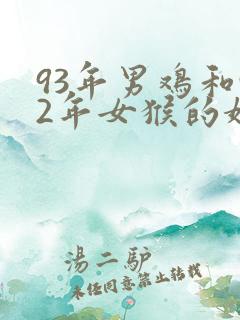 93年男鸡和
2年女猴的
湯二驴
未任同意禁止转载